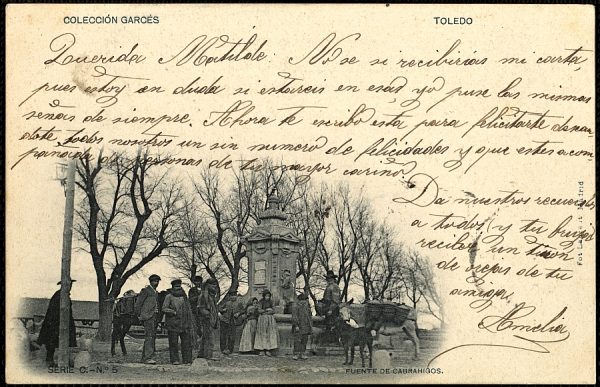 COLECCIÓN GARCÉS
TOLEDO
Querida Matilde. No se si recibirias mi carta,
pues estoy en duda si estareis en esa, yo puse las mismas
señas de siempre. Ahora te escribo esta para felicitarte desean
dote todos nosotros un sin numero de felicidades y que estes acom
pañada de personas de tu mayor cariño.
Da nuestros recuerdos
a todos, y tu
recibes un tiron
de orejas de tu
amiga,
Amelia
SERIE C.-N.º 5
FUENTE DE CABRAHIGOS.